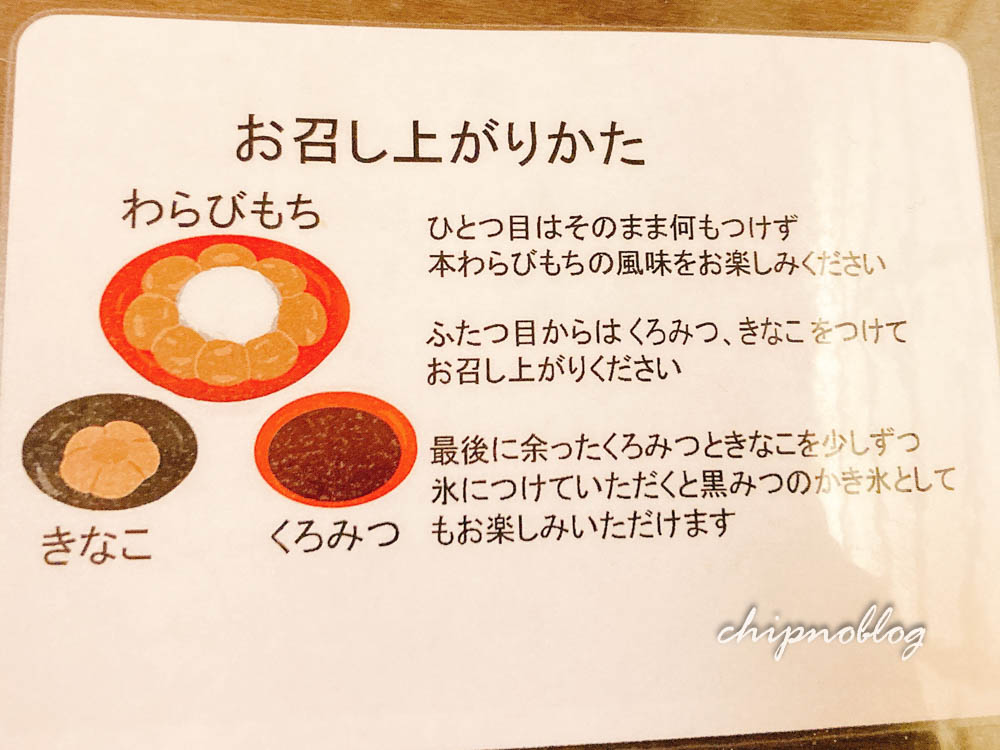 お召し上がりかた
わらびもち
きなこ
くろみつ
ひとつ目はそのまま何もつけず
本わらびもちの風味をお楽しみください
ふたつ目からはくろみつ、きなこをつけて
お召し上がりください
最後に余ったくろみつときなこを少しずつ
氷につけていただくと黒みつのかき氷として
もお楽しみいただけます
chipnoblog